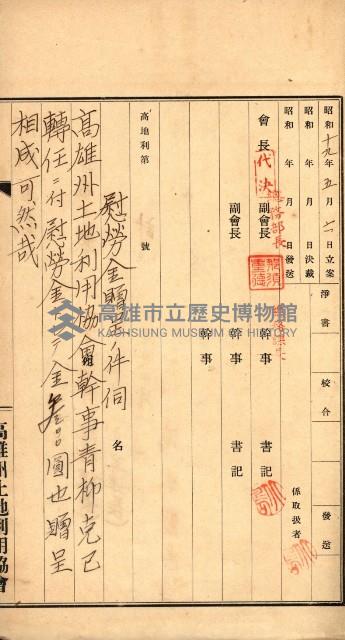 昭和十九年五月六日立案 淨書 校合 發送
昭和 年 月 日決裁
昭和 年 月 日發送 係取扱者
會長 代決 總務部長 副會長 幹事 書記
副會長 幹事 書記
幹事
高地利第 號 名
慰勞金贈呈ノ件伺
高雄州土地利用協會幹事青柳克己
轉任ニ付慰勞金トシテ金 圓也贈呈
相成可然哉
高雄州土地利用協會
高雄市立歷史博物館
KAOHSIUNG MUSEUM OF HISTORY